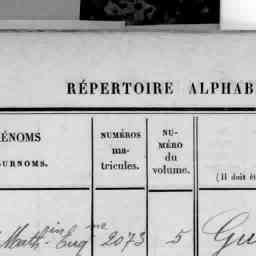 RÉPERTOIRE ALPHAB
ÉNOMS
URNOMS.
NUMÉROS
ma-
tricules.
NU-
MÉRO
du
volume.
(Il doit êt
Math-in Eugne 2073 5 Gu